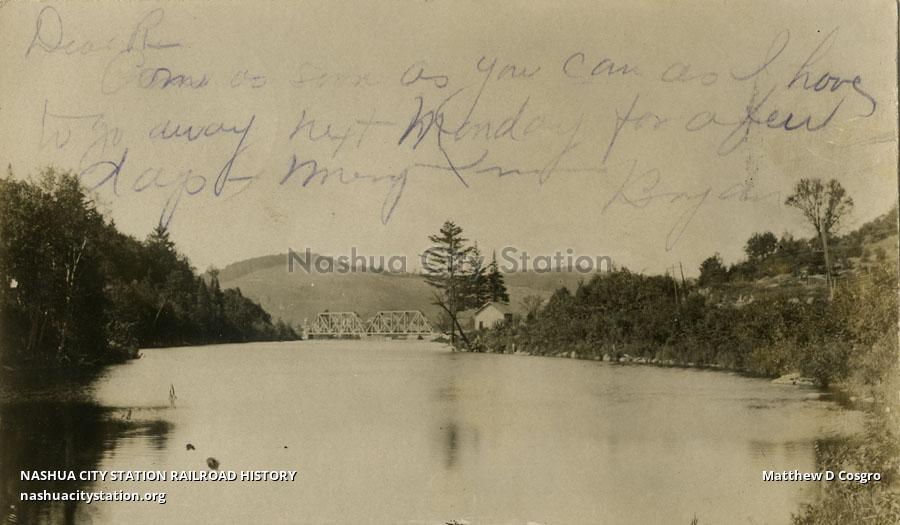 Dear R
Come as soon as you can as I have
to go away next Monday for a few
days
Bryan
Nashua City Station
NASHUA CITY STATION RAILROAD HISTORY
nashuacitystation.org
Matthew D Cosgro